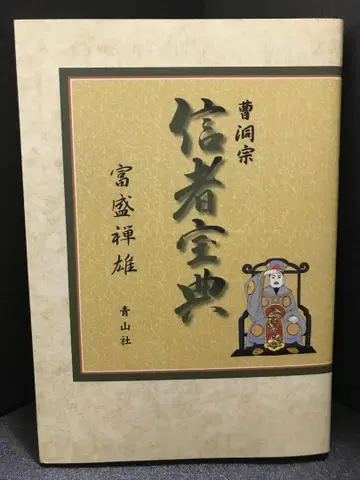 曹洞宗
信者宝典
富盛禅雄
青山社